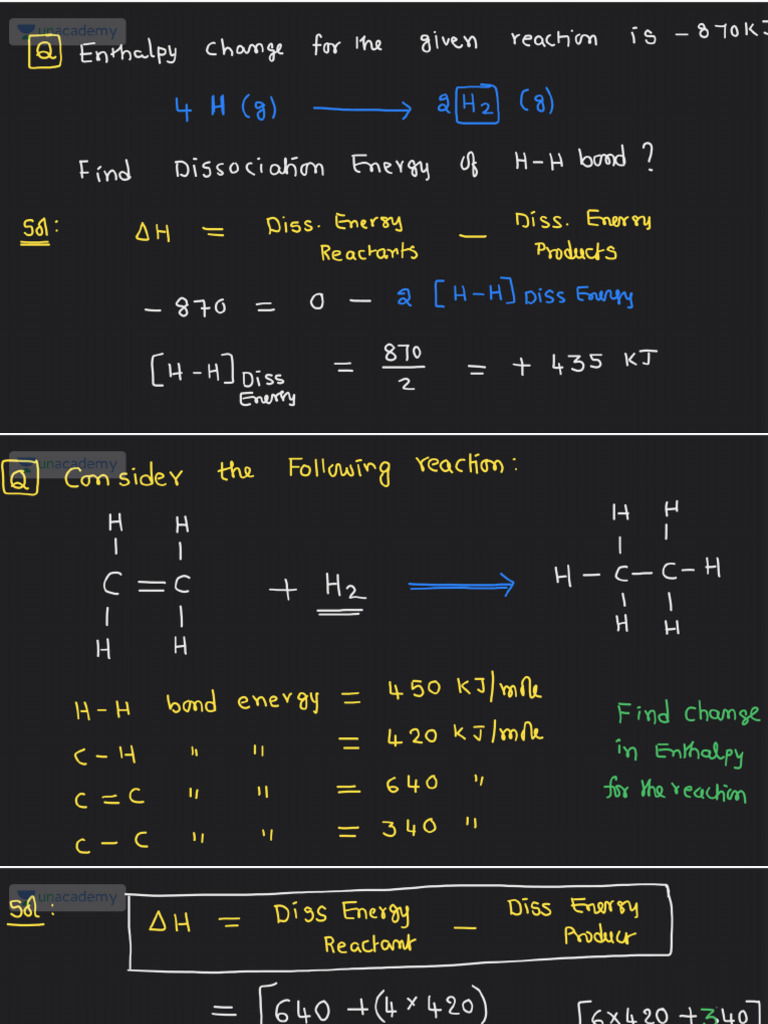 unacademy
Q Enthalpy change for the given reaction is - 870 KJ
4 H (g) → 2 H2 (g)
Find Dissociation Energy of H-H bond?
Sol: ΔH = Diss. Energy Reactants - Diss. Energy Products
- 870 = 0 - 2 [H-H] Diss Energy
[H-H] Diss Energy = 870/2 = + 435 KJ
unacademy
Q Consider the Following reaction:
H H H H
C = C + H2 ⟹ H - C - C - H
H H H H
H-H bond energy = 450 KJ/mole
C-H " " = 420 KJ/mole
C=C " " = 640 "
C-C " " = 340 "
Find change
in Enthalpy
for the reaction
unacademy
Sol: ΔH = Diss Energy Reactant - Diss Energy Product
= [640 + (4×420) [6×420 + 340]